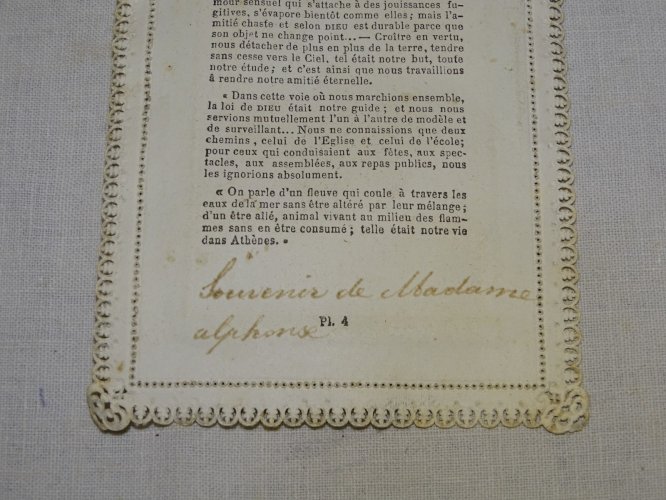 mour sensuel qui s'attache à des jouissances fu-
gitives, s'évapore bientôt comme elles; mais l'a-
mitié chaste et selon DIEU est durable parce que
son objet ne change point... — Croître en vertu,
nous détacher de plus en plus de la terre, tendre
sans cesse vers le Ciel, tel était notre but, toute
notre étude; et c'est ainsi que nous travaillions
à rendre notre amitié éternelle.
« Dans cette voie où nous marchions ensemble,
la loi de DIEU était notre guide; et nous nous
servions mutuellement l'un à l'autre de modèle et
de surveillant... Nous ne connaissions que deux
chemins, celui de l'Eglise et celui de l'école;
pour ceux qui conduisaient aux fêtes, aux spec-
tacles, aux assemblées, aux repas publics, nous
les ignorions absolument.
« On parle d'un fleuve qui coule à travers les
eaux de la mer sans être altéré par leur mélange;
d'un être ailé, animal vivant au milieu des flam-
mes sans en être consumé; telle était notre vie
dans Athènes. »
Souvenir de Madame
Pl. 4
alphonse